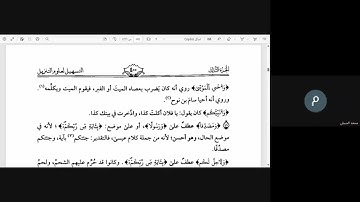 الجزء الثالث
٤٠٠
التسهيل لعلوم التنزيل
﴿وَأُحْيِ الْمَوْتَىٰ﴾ روي أنه كان يضرب بعصاه الميت أو القبر، فيقوم الميت ويكلِّمه
وروي أنه أحيا سام بن نوح
﴿وَأُنَبِّئُكُم﴾ كان يقول: يا فلان أكلتَ كذا، وادَّخرت في بيتك كذا.
﴿وَمُصَدِّقًا﴾ عطفٌ على ﴿وَرَسُولًا﴾، أو على موضع: ﴿بِـَٔايَةٍ مِّن رَّبِّكُمْ﴾؛ لأنه في
موضع الحال، وهو أحسن؛ لأنه من جملة كلام عيسى، فالتقدير: جئتكم بآية، وجئتكم
مصدِّقًا.
﴿وَلِأُحِلَّ لَكُم﴾ عطفٌ على ﴿بِـَٔايَةٍ مِّن رَّبِّكُمْ﴾. وكانوا قد حُرِّم عليهم الشحم، ولحم
م